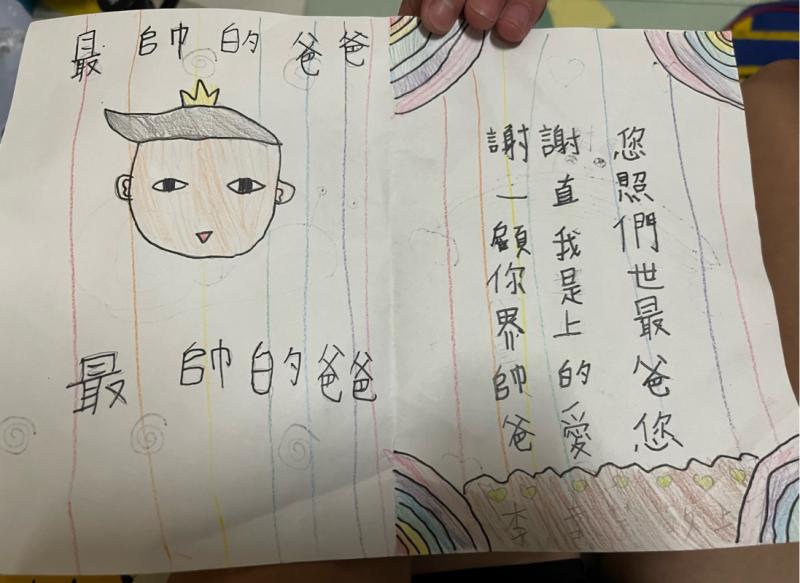 最帥的爸爸
最帥的爸爸
謝謝您
一直照
顧我們
你是世
界上最
帥的爸
爸愛您
李 上